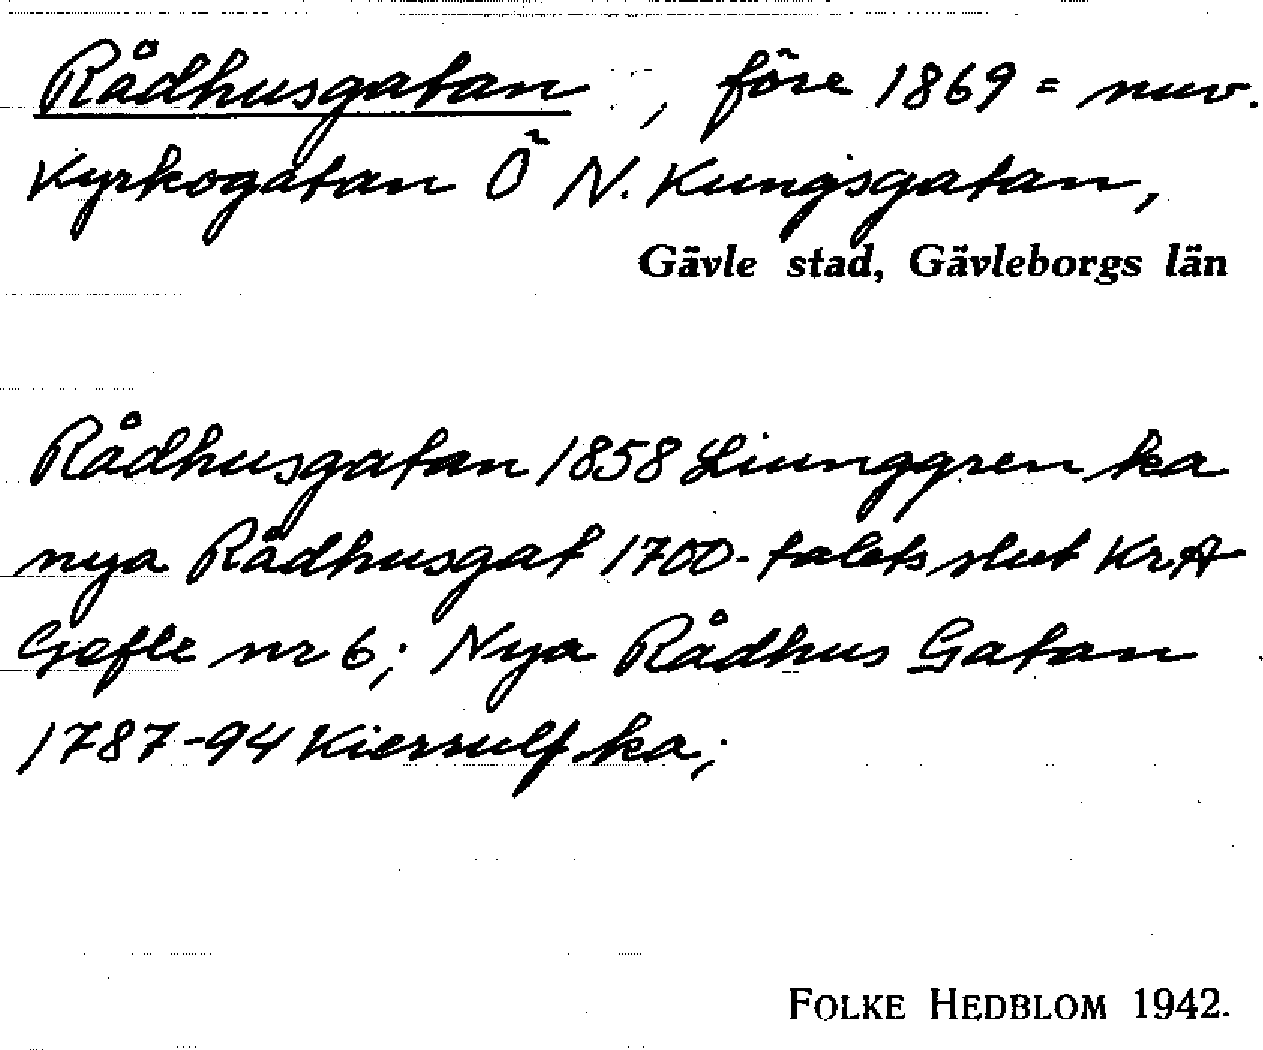 Rådhusgatan, före 1869 = nuv.
Kyrkogatan Ö N. Kungsgatan,
Gävle stad, Gävleborgs län
Rådhusgatan 1858 Liunggren ka
nya Rådhusgat 1700-talets slut KrA
Gefle nr 6; Nya Rådhus Gatan
1787-94 Kierrulf ka;
FOLKE HEDBLOM 1942.